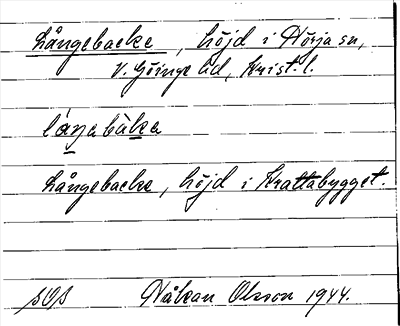 Långebacke, höjd i Nörja sn,
V. Göinge hd, Krist. l.
låŋabàka
Långebacke, höjd i Krattabygget.
SOS Håkan Olsson 1944.